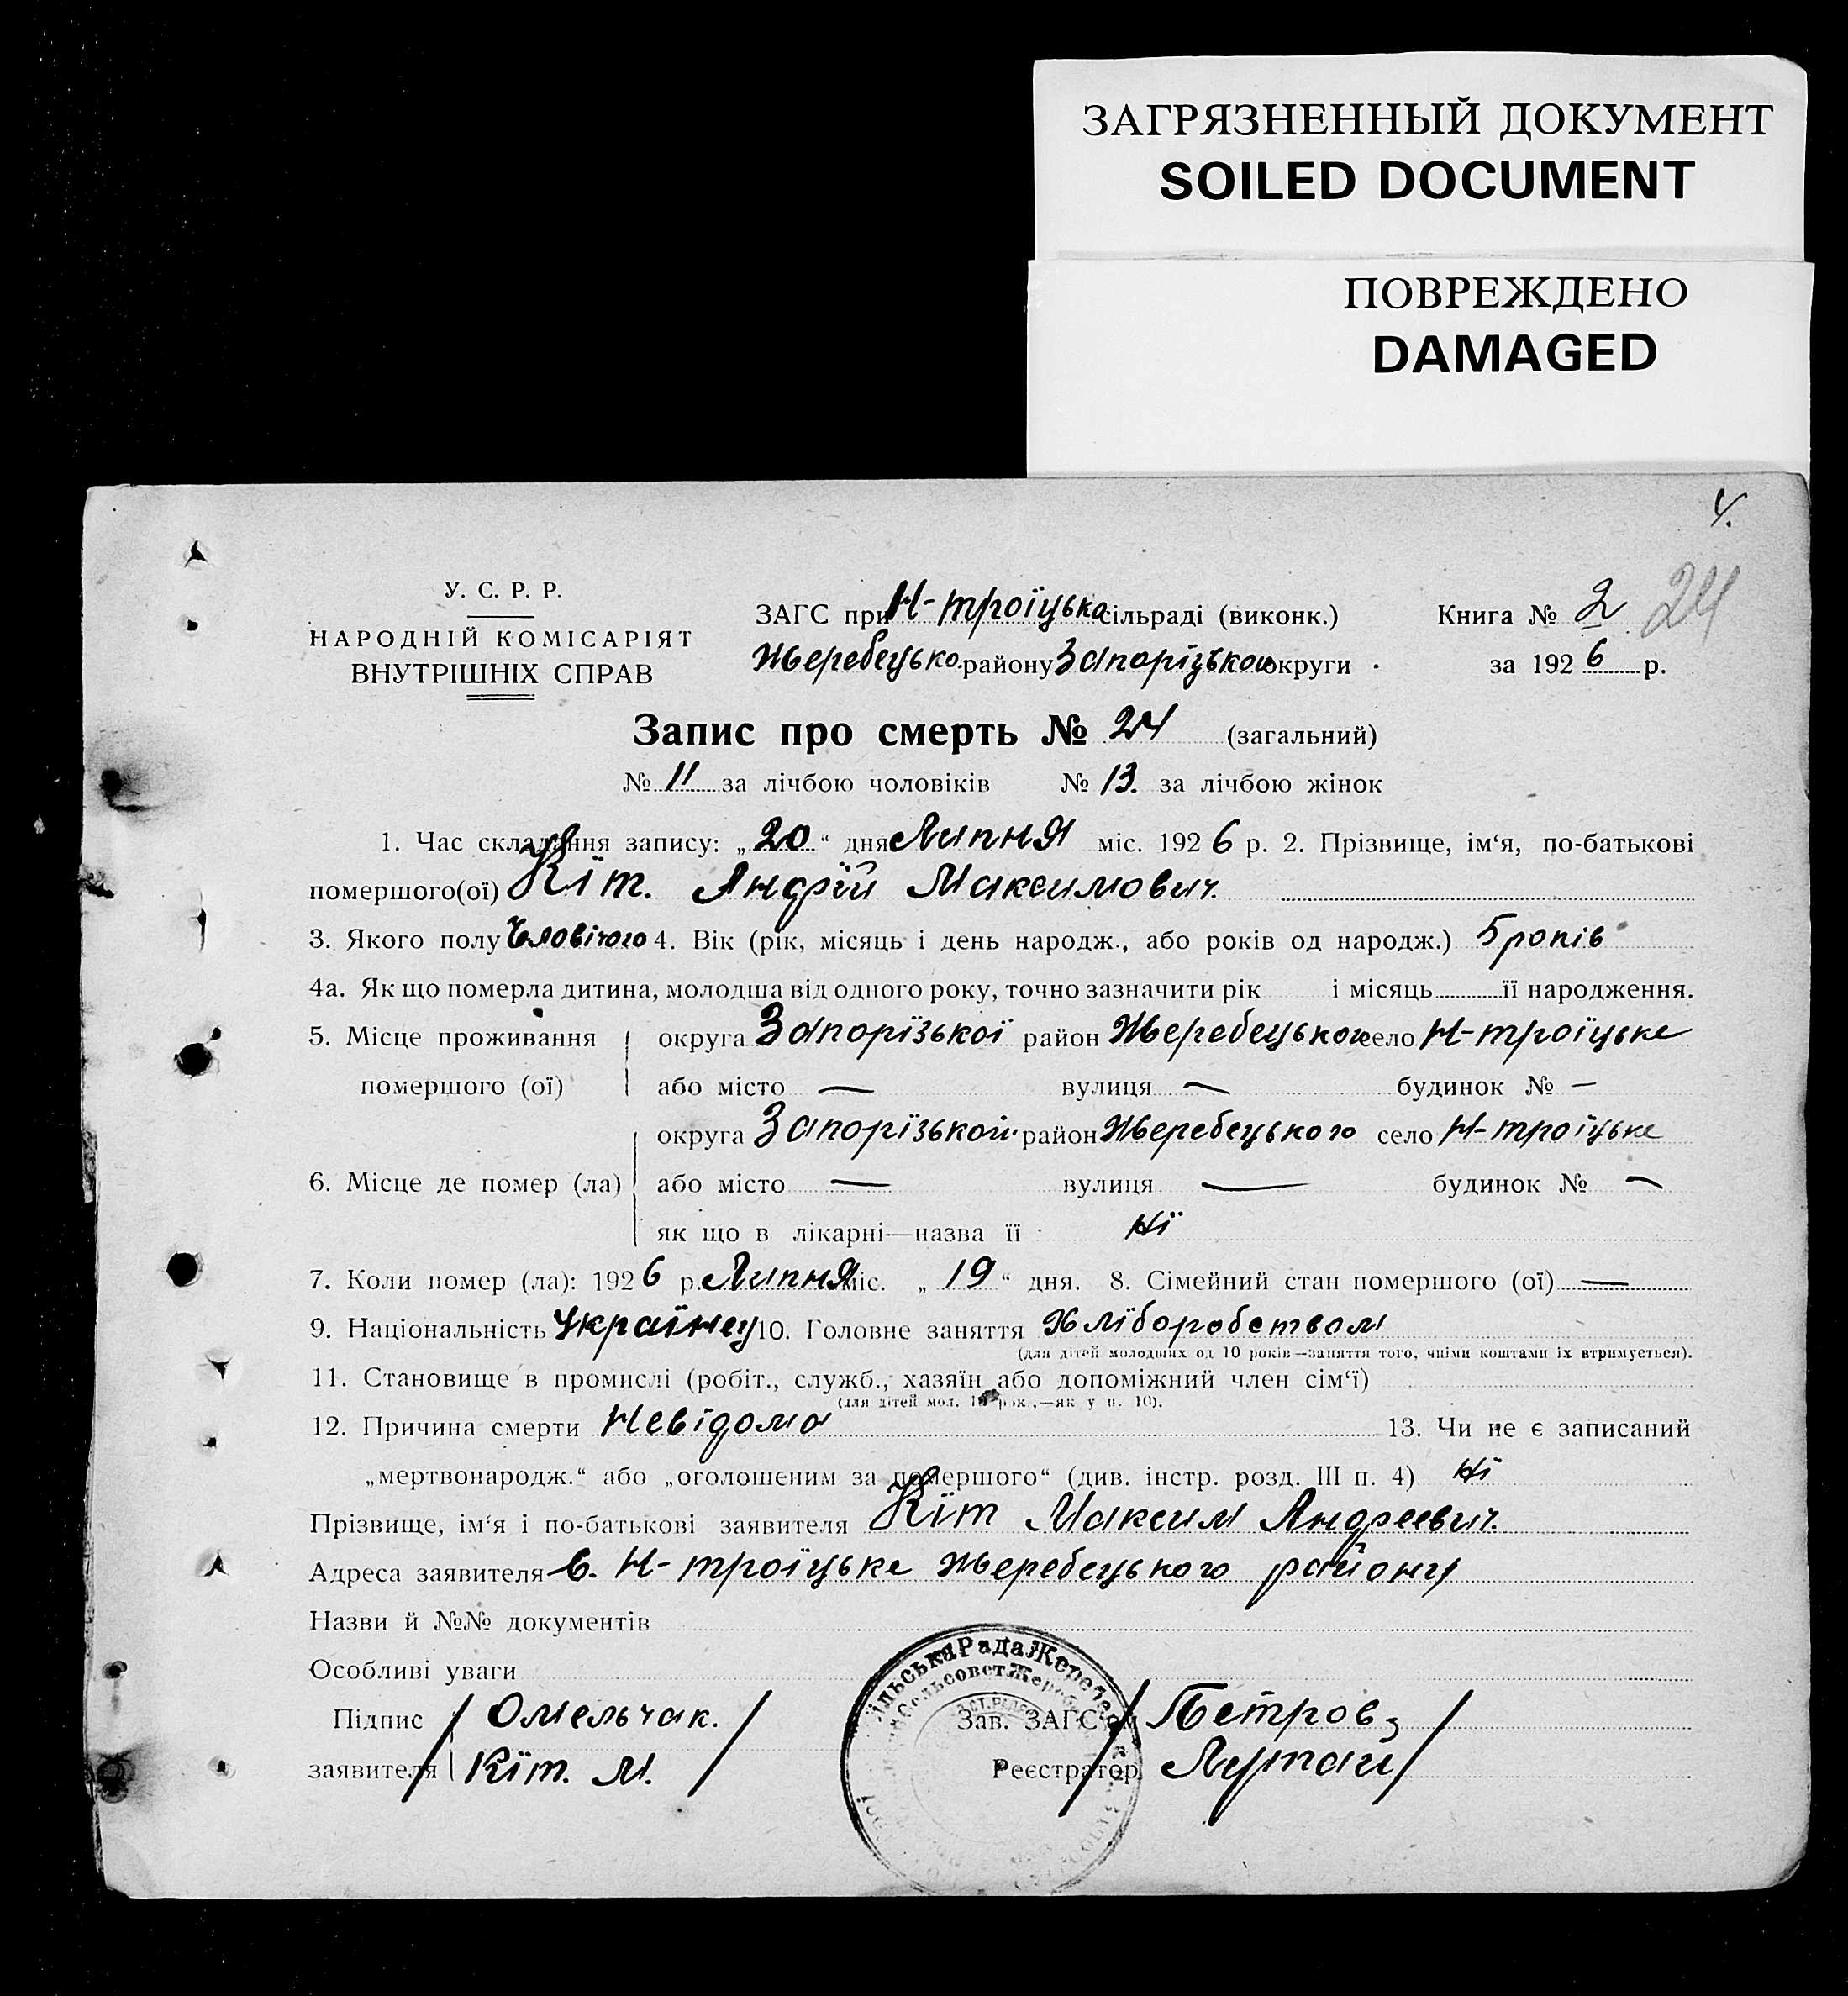 ЗАГРЯЗНЕННЫЙ ДОКУМЕНТ
SOILED DOCUMENT
ПОВРЕЖДЕНО
DAMAGED
4.
У. С. Р. Р.
НАРОДНІЙ КОМІСАРІЯТ
ВНУТРІШНІХ СПРАВ
ЗАГС при Н-троїцька сільраді (виконк.)
Жеребецько. району Запорізькои округи
Книга № 2 24
за 1926 р.
Запис про смерть № 24 (загальний)
№ 11 за лічбою чоловіків № 13. за лічбою жінок
1. Час складання запису: „20“ дня Липня міс. 1926 р. 2. Прізвище, ім‘я, по-батькові
помершого(ої) Кїт. Андрїй Максимович.
3. Якого полу Чловічого 4. Вік (рік, місяць і день народж., або років од народж.) 5 років
4а. Як що померла дитина, молодша від одного року, точно зазначити рік і місяць її народження.
5. Місце проживання помершого (ої)
округа Запорїзької район Жеребецького село Н-троїцьке
або місто — вулиця — будинок № —
6. Місце де помер (ла)
округа Запорїзькой район Жеребецького село Н-троїцьке
або місто — вулиця — будинок № —
як що в лікарні—назва її нї
7. Коли помер (ла): 1926 р. Липня міс. „19“ дня. 8. Сімейний стан помершого (ої) —
9. Національність Українец 10. Головне заняття Хлїборобством
(для дітей молодших од 10 років—заняття того, чиїми коштами їх втримується).
11. Становище в промислі (робіт., служб., хазяїн або допоміжний член сім‘ї)
(для дітей мол. 10 рок.,—як у п. 10).
12. Причина смерти Невідома 13. Чи не є записаний
„мертвонародж.“ або „оголошеним за помершого“ (див. інстр. розд. III п. 4) нї
Прізвище, ім‘я і по-батькові заявителя Кїт Максим Андреевич.
Адреса заявителя в. Н-троїцьке жеребецького району
Назви й №№ документів
Особливі уваги
Підпис заявителя / Омельчак. /
Кїт. М.
Зав. ЗАГС'ом / Петров /
Реєстратор Лутай
Сільська Рада Жеребец
Сельсовет Жереб